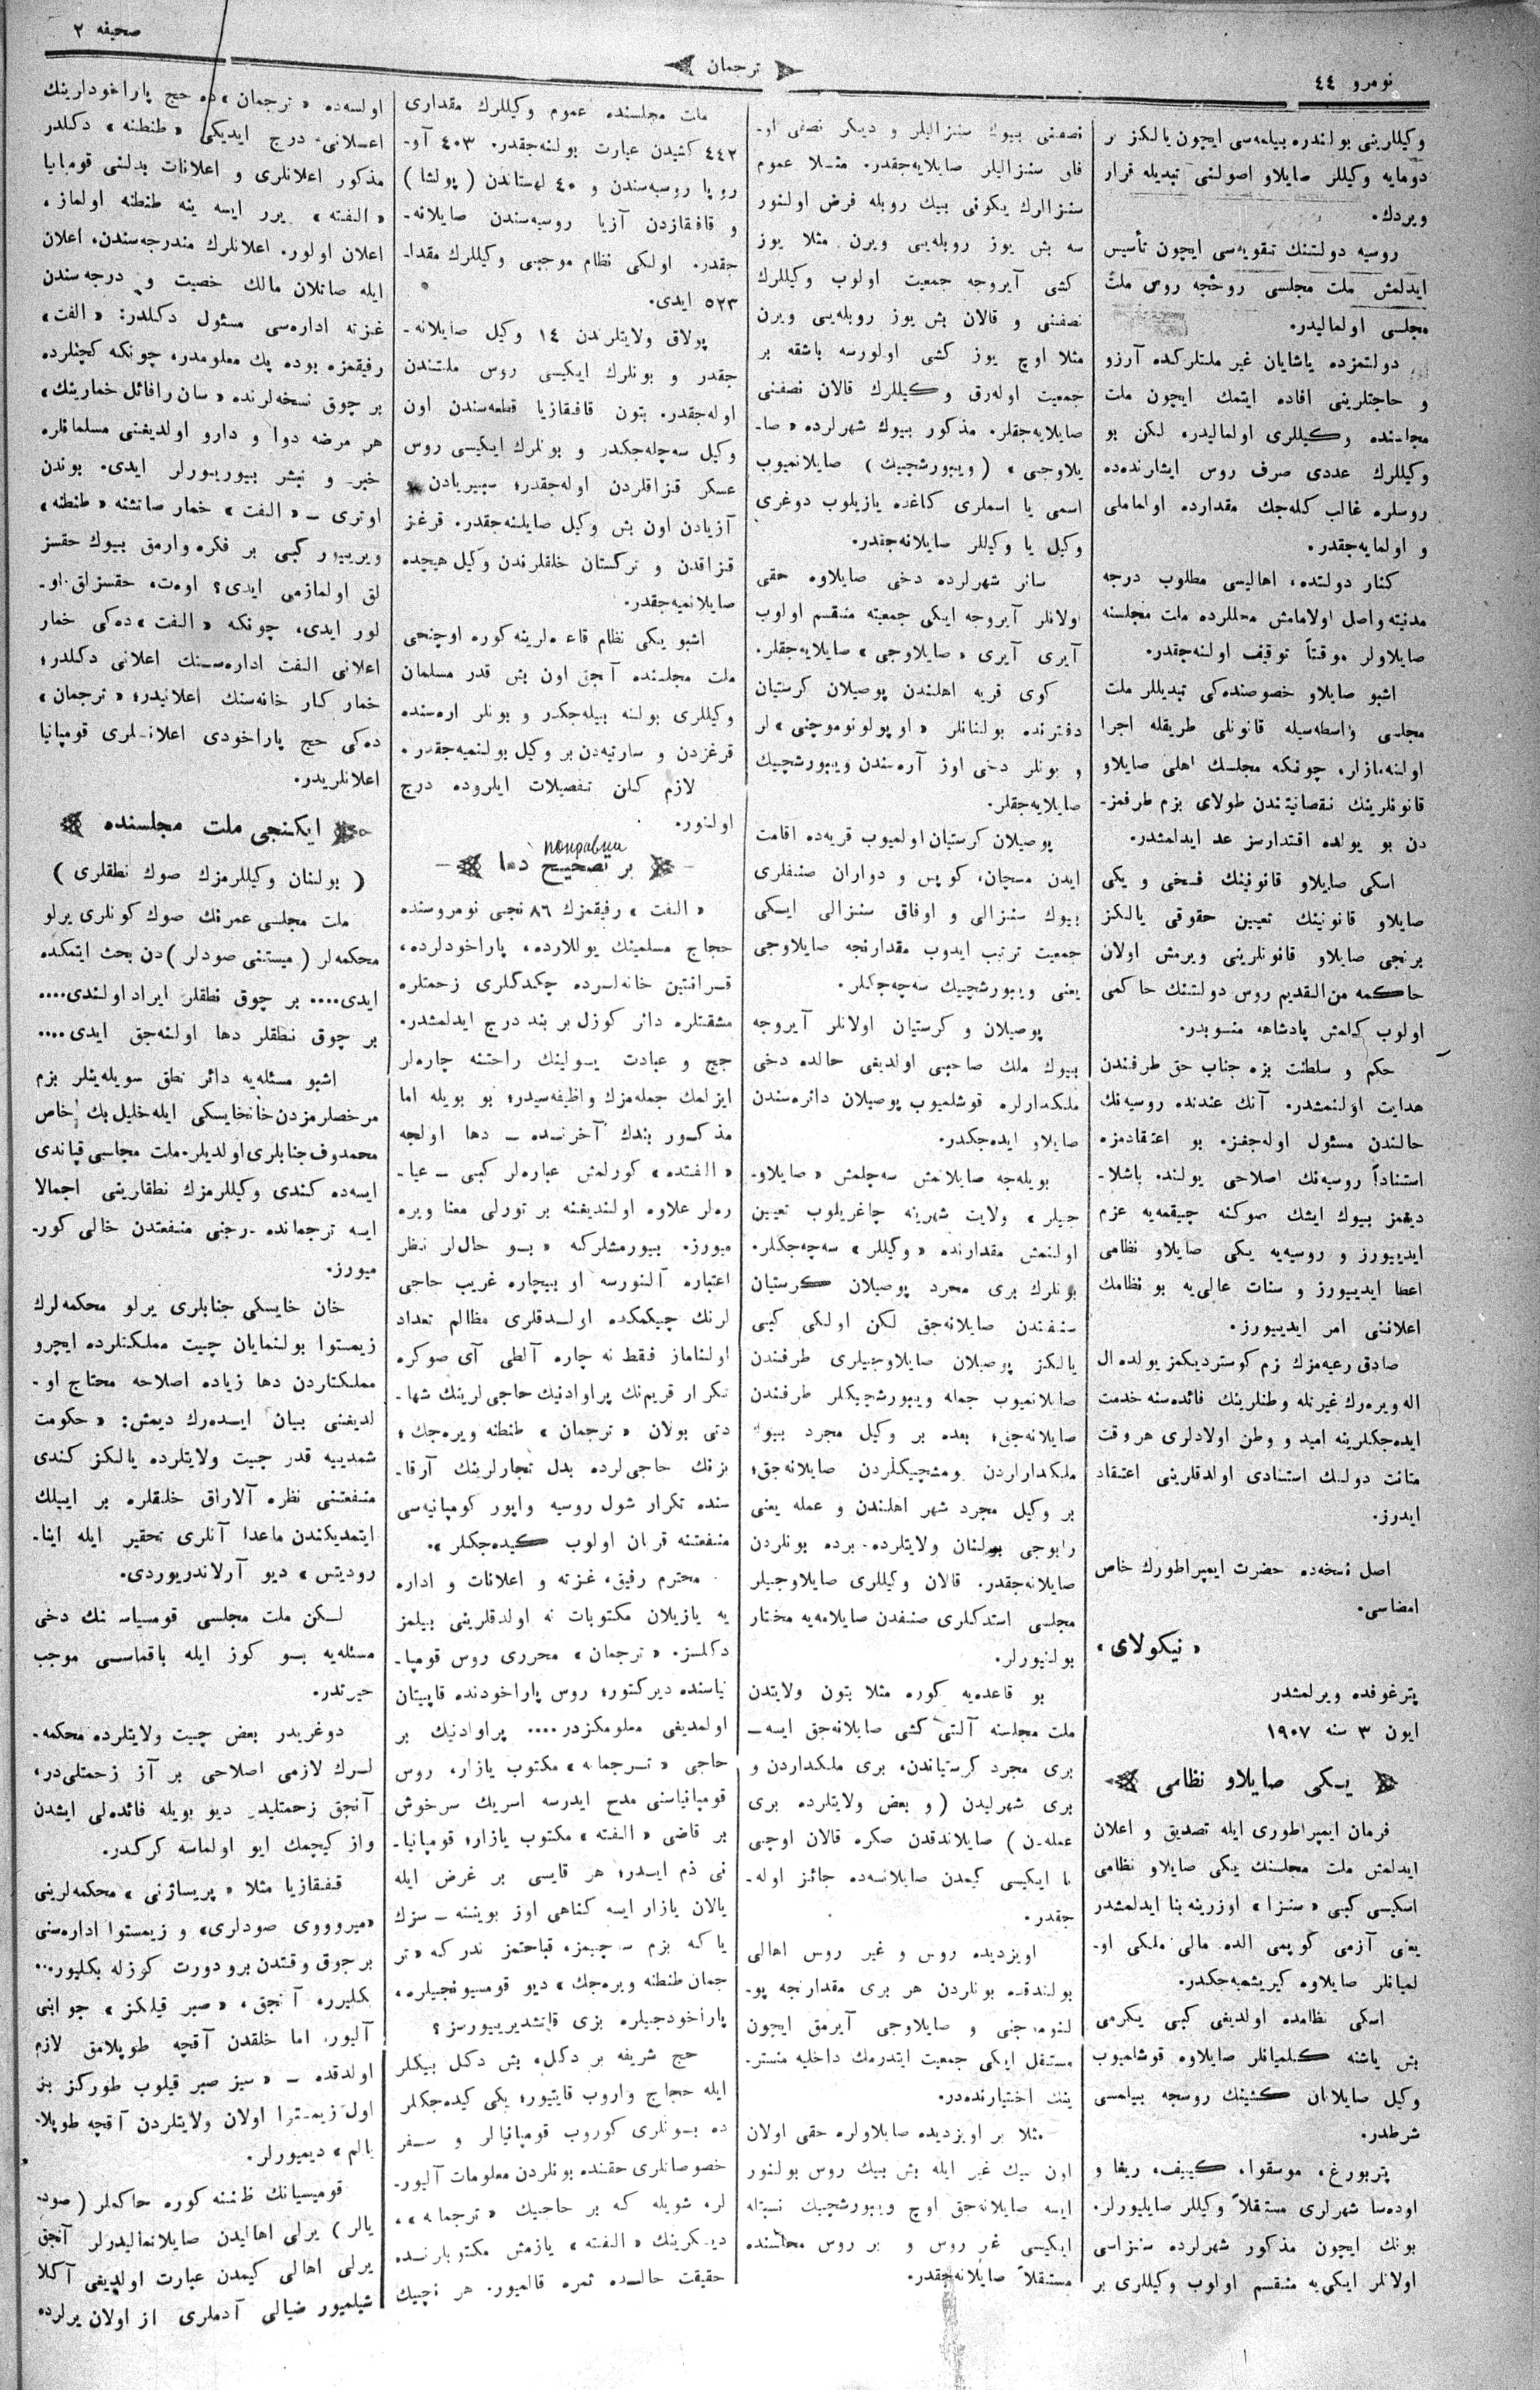 نومرو ٤٤
ترجمان
صحيفه ٢
وكيللرينى بولندره بيلمه‌سى ايچون يالكز
دومايه وكيللر صايلاو اصولنى تبديله قرار
ويردك.
روسيه دولتنك تقويه‌سى ايچون تأسيس
ايدلمش ملت مجلسى روحجه روس ملت
مجلسى اولماليدر.
دولتمزده ياشايان غير ملتلركده آرزو
و حاجتلرينى افاده ايتمك ايچون ملت
مجلسنده وكيللرى اولماليدر، لكن بو
وكيللرك عددى صرف روس ايشلرنده‌ده
روسلره غالب كله‌جك مقدارده اولماملى
و اولمايه‌جقدر.
كنار دولتده، اهاليسى مطلوب درجه
مدنيته واصل اولامامش محللرده ملت مجلسنه
صايلاولر موقتاً توقيف اولنه‌جقدر.
اشبو صايلاو خصوصنده‌كى تبديللر ملت
مجلسى واسطه‌سيله قانونلى طريقله اجرا
اولنه‌مازلر، چونكه مجلسك اهلى صايلاو
قانونلرينك نقصانيتندن طولاى بزم طرفمز-
دن بو يولده اقتدارسز عد ايدلمشدر.
اسكى صايلاو قانونينك فسخى و يكى
صايلاو قانونينك تعيين حقوقى يالكز
برنجى صايلاو قانونلرينى ويرمش اولان
حاكمه من القديم روس دولتنك حاكمى
اولوب كلمش پادشاهه منسوبدر.
حكم و سلطنت بزه جناب حق طرفندن
هدايت اولنمشدر. آنك عندنده روسيه‌نك
حالندن مسئول اوله‌جغز. بو اعتقادمزه
استناداً روسيه‌نك اصلاحى يولنده باشلا-
ديغمز بيوك ايشك صوكنه چيقمه‌يه عزم
ايدييورز و روسيه‌يه يكى صايلاو نظامى
اعطا ايدييورز و سنات عالى‌يه بو نظامك
اعلاننى امر ايدييورز.
صادق رعيه‌مزك بزم كوسترديكمز يولده ال
اله ويره‌رك غيرتله وطنلرينك فائده‌سنه خدمت
ايده‌جكلرينه اميد و وطن اولادلرى هر وقت
متانت دولتك استنادى اولدقلرينى اعتقاد
ايدرز.
اصل نسخه‌ده حضرت ايمپراطورك خاص
امضاسى.
« نيكولاى »
پترغوفده ويرلمشدر
ايون ٣ سنه ١٩٠٧
يكى صايلاو نظامى
فرمان ايمپراطورى ايله تصديق و اعلان
ايدلمش ملت مجلسنك يكى صايلاو نظامى
اسكيسى كبى « سنزا » اوزرينه بنا ايدلمشدر
يعنى آزمى كوپمى الده مالى ملكى او-
لميانلر صايلاوه كيريشميه‌جكدر.
اسكى نظامده اولديغى كبى يكرمى
بش ياشنه كلميانلر صايلاوه قوشلميوب
وكيل صايلانان كشينك روسجه بيلمسى
شرطدر.
پتربورغ، موسقوا، كييف، ريغا و
اوده‌سا شهرلرى مستقلاً وكيللر صايليورلر.
بونك ايچون مذكور شهرلرده سنزاسى
اولانلر ايكى‌يه منقسم اولوب وكيللرى بر
نصفنى بيوك سنزاليلر و ديكر نصفى او-
فاق سنزاليلر صايلايه‌جقدر. مثلا عموم
سنزالرك يكونى بيك روبله فرض اولنور
سه بش يوز روبله‌يى ويرن مثلا يوز
كشى آيروجه جمعيت اولوب وكيللرك
نصفنى و قالان بش يوز روبله‌يى ويرن
مثلا اوچ يوز كشى اولورسه باشقه بر
جمعيت اوله‌رق وكيللرك قالان نصفنى
صايلايه‌جقلر. مذكور بيوك شهرلرده « صا-
يلاوجى » ( ويبورشچيك ) صايلانميوب
اسمى يا اسملرى كاغده يازيلوب دوغرى
وكيل يا وكيللر صايلانه‌جقدر.
سائر شهرلرده دخى صايلاوه حقى
اولانلر آيروجه ايكى جمعيته منقسم اولوب
آيرى آيرى « صايلاوجى » صايلايه‌جقلر.
كوى قريه اهلندن پوصيلان كرستيان
دفترنده بولنانلر « اوپولونوموچنى » لر
و بونلر دخى اوز آره‌سندن ويبورشچيك
صايلايه‌جقلر.
پوصيلان كرستيان اولميوب قريه‌ده اقامت
ايدن مسچان، كوپس و دواران صنفلرى
بيوك سنزالى و اوفاق سنزالى ايكى
جمعيت ترتيب ايدوب مقدارنجه صايلاوجى
يعنى ويبورشچيك سه‌چه‌جكلر.
پوصيلان و كرستيان اولانلر آيروجه
بيوك ملك صاحبى اولديغى حالده دخى
ملكدارلره قوشلميوب پوصيلان دائره‌سندن
صايلاو ايده‌جكدر.
بويله‌جه صايلانمش سه‌چلمش « صايلاو-
جيلر » ولايت شهرينه چاغريلوب تعيين
اولنمش مقدارنده « وكيللر » سه‌چه‌جكلر.
بونلرك برى مجرد پوصيلان كرستيان
صنفندن صايلانه‌جق لكن اولكى كبى
يالكز پوصيلان صايلاوجيلرى طرفندن
صايلانميوب جمله ويبورشچيكلر طرفندن
صايلانه‌جق؛ بعده بر وكيل مجرد بيوك
ملكدارلردن پومشچيكلردن صايلانه‌جق؛
بر وكيل مجرد شهر اهلندن و عمله يعنى
رابوچى بولنان ولايتلرده برده بونلردن
صايلانه‌جقدر. قالان وكيللرى صايلاوجيلر
مجلسى استدكلرى صنفدن صايلامه‌يه مختار
بولنيورلر.
بو قاعده‌يه كوره مثلا بتون ولايتدن
ملت مجلسنه آلتى كشى صايلانه‌جق ايسه -
برى مجرد كرستياندن، برى ملكداردن و
برى شهرليدن ( و بعض ولايتلرده برى
عمله‌دن ) صايلاندقدن صكره قالان اوچى
يا ايكيسى كيمدن صايلانسه‌ده جائز اوله-
جقدر.
اويزديده روس و غير روس اهالى
بولندقده بونلردن هر برى مقدارنجه پو-
لنوموچنى و صايلاوجى آيرمق ايچون
مستقل ايكى جمعيت ايتدرمك داخليه منستر-
ينك اختيارنده‌در.
مثلا بر اويزديده صايلاولره حقى اولان
اون بيك غير ايله بش بيك روس بولنور
ايسه صايلانه‌جق اوچ ويبورشچيك نسبتله
ايكيسى غير روس و بر روس مجلسنده
مستقلاً صايلانه‌جقدر.
ملت مجلسنده عموم وكيللرك مقدارى
٤٤٢ كشيدن عبارت بولنه‌جقدر. ٤٠٣ آو-
روپا روسيه‌سندن و ٤٠ لهستاندن ( پولشا )
و قافقازدن آزيا روسيه‌سندن صايلانه-
جقدر. اولكى نظام موجبى وكيللرك مقدا-
٥٢٣ ايدى.
پولاق ولايتلرندن ١٤ وكيل صايلانه-
جقدر و بونلرك ايكيسى روس ملتندن
اوله‌جقدر. بتون قافقازيا قطعه‌سندن اون
وكيل سه‌چله‌جكدر و بونلرك ايكيسى روس
عسكر قزاقلردن اوله‌جقدر؛ سيبريادن
آزيادن اون بش وكيل صايلنه‌جقدر. قرغز
قزاقدن و تركستان خلقلرندن وكيل هيچده
صايلانميه‌جقدر.
اشبو يكى نظام قاعده‌لرينه كوره اوچنجى
ملت مجلسنده آنجق اون بش قدر مسلمان
وكيللرى بولنه بيله‌جكدر و بونلر اره‌سنده
قرغزدن و سارتيه‌دن بر وكيل بولنميه‌جقدر.
لازم كلن تفصيلات ايلروده درج
اولنور.
поправка
بر تصحيح دها
« الفت » رفيقمزك ٨٦ نجى نومروسنده
حجاج مسلمينك يوللارده، پاراخودلرده،
قرانتين خانه‌لرده چكدكلرى زحمتلره
مشقتلره دائر كوزل بر بند درج ايدلمشدر.
حج و عبادت يولينك راحتنه چاره‌لر
ايزلمك جمله‌مزك وظيفه‌سيدر؛ بو بويله اما
مذكور بندك آخرنده - دها اولجه
« الفتده » كورلمش عباره‌لر كبى - عبا-
ره‌لر علاوه اولنديغنه بر تورلى معنا ويره
ميورز. بيورمشلركه « بو حال‌لر نظر
اعتباره آلنورسه او بيچاره غريب حاجى
لرنك چيكمكده اولدقلرى مظالم تعداد
اولناماز فقط نه چاره آلطى آى صوكره
تكرار قريم‌نك پراوادنيك حاجى‌لرينك شها-
دتى بولان « ترجمان » طنطنه ويره‌جك؛
بزنك حاجى‌لرده بدل تجارلرينك آرقا-
سنده تكرار شول روسيه واپور كومپانيه‌سى
منفعتنه قربان اولوب كيده‌جكلر ».
محترم رفيق، غزته و اعلانات و اداره
يه يازيلان مكتوبات نه اولدقلرينى بيلمز
دكلسز. « ترجمان » محررى روس قومپا-
نياسنده ديركتور؛ روس پاراخودنده قاپيتان
اولمديغى معلومكزدر.... پراوادنيك بر
حاجى « ترجمانه » مكتوب يازار، روس
قومپانياسنى مدح ايدرسه اسريك سرخوش
بر قاضى « الفته » مكتوب يازار؛ قومپانيا-
نى ذم ايدر؛ هر قايسى بر غرض ايله
يالان يازار ايسه كناهى اوز بويننه - سزك
ياكه بزم سوچيمز، قباحتمز ندر كه « تر
جمان طنطنه ويره‌جك » ديو قومسيونجيلره،
پاراخودجيلره بزى قاتشديرييورسز؟
حج شريفه بر دكل، بش دكل بيكلر
ايله حجاج واروب قايتيور؛ يكى كيده‌جكلر
ده بونلرى كوروب قومپانيالر و سفر
خصوصلرى حقنده بونلردن معلومات آليور-
لر، شويله كه بر حاجينك « ترجمانه »،
ديكرينك « الفته » يازمش مكتوبلرنده
حقيقت حالده ثمره قالميور. هر نچيك
اولسه‌ده « ترجمان »ده حج پاراخودلرينك
اعلانى درج ايديكى « طنطنه » دكلدر
مذكور اعلانلرى و اعلانات بدلنى قومپانيا
« الفته » يرر ايسه ينه طنطنه اولماز،
اعلان اولور. اعلانلرك مندرجه‌سندن، اعلان
ايله صاتلان مالك خصيت و درجه‌سندن
غزته اداره‌سى مسئول دكلدر: « الفت »
رفيقمزه بوده پك معلومدر، چونكه كچنلرده
بر چوق نسخه‌لرنده « سان رافائل خمارينك »
هر مرضه دوا و دارو اولديغنى مسلمانلره
خبر و نشر بيوريورلر ايدى. بوندن
اوترى - « الفت » خمار صاتشنه « طنطنه »
ويرييور كبى بر فكره وارمق بيوك حقسز
لق اولمازمى ايدى؟ اوت، حقسزلق او-
لور ايدى، چونكه « الفت »ده‌كى خمار
اعلانى الفت اداره‌سنك اعلانى دكلدر؛
خمار كار خانه‌سنك اعلانيدر؛ « ترجمان »
ده‌كى حج پاراخودى اعلانلرى قومپانيا
اعلانلريدر.
ايكنجى ملت مجلسنده
( بولنان وكيللرمزك صوك نطقلرى )
ملت مجلسى عمرنك صوك كونلرى يرلو
محكمه‌لر ( ميستنى صودلر )دن بحث ايتمكده
ايدى.... بر چوق نطقلر ايراد اولندى....
بر چوق نطقلر دها اولنه‌جق ايدى....
اشبو مسئله‌يه دائر نطق سويله‌ينلر بزم
مرخصلرمزدن خانخايسكى ايله خليل بك خاص
محمدوف جنابلرى اولديلر. ملت مجلسى قپاندى
ايسه‌ده كندى وكيللرمزك نطقلرينى اجمالا
ايسه ترجمانده درجنى منفعتدن خالى كور-
ميورز.
خان خايسكى جنابلرى يرلو محكمه‌لرك
زيمستوا بولنمايان چيت مملكتلرده ايچرو
مملكتلردن دها زياده اصلاحه محتاج او-
لديغنى بيان ايده‌رك ديمش: « حكومت
شمدييه قدر چيت ولايتلرده يالكز كندى
منفعتنى نظره آلاراق خلقلره بر اييلك
ايتمديكندن ماعدا آنلرى تحقير ايله اينا-
روديتس » ديو آرلاندريوردى.
لكن ملت مجلسى قومسياسىنك دخى
مسئله‌يه بو كوز ايله باقماسى موجب
حيرتدر.
دوغريدر بعض چيت ولايتلرده محكمه-
لرك لازمى اصلاحى بر آز زحمتلى‌در،
آنجق زحمتليدر ديو بويله فائده‌لى ايشدن
واز كيچمك ايو اولماسه كركدر.
قفقازيا مثلا « پريساژنى » محكمه‌لرينى
«ميرووى صودلرى» و زيمستوا اداره‌سنى
برچوق وقتدن برو دورت كوزله بكليور...
بكلير، آنجق، « صبر قيلكز » جوابنى
آليور. اما خلقدن آقچه طوپلامق لازم
اولدقده - « سيز صبر قيلوب طوركز بز
اول زيمستوا اولان ولايتلردن آقچه طوپلا-
يالم » ديميورلر.
قوميسيانك ظننه كوره حاكملر ( صود-
يالر ) يرلى اهاليدن صايلانماليدرلر آنجق
يرلى اهالى كيمدن عبارت اولديغى آكلا
شيلميور ضيالى آدملرى از اولان يرلرده